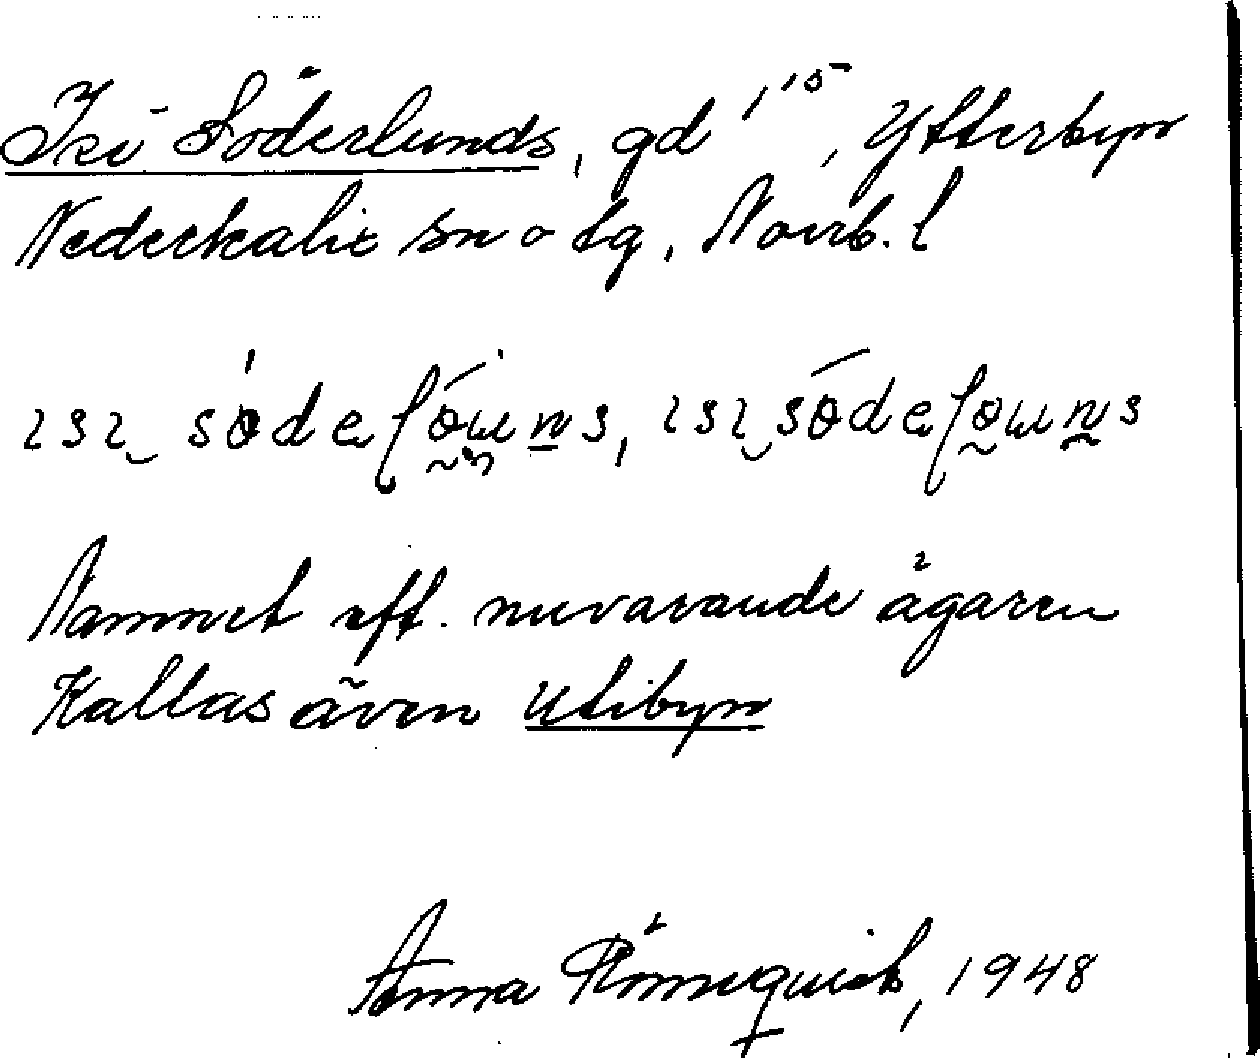 Isi Söderlunds, gd 1¹⁵, Ytterbyn
Nederkalix sn o tg, Norrb. l
ısı södeɽөɯns, ısı södeɽөɯns
Namnet eft. nuvarande ägaren
Kallas även Utibyn
Anna Rönnequist, 1948